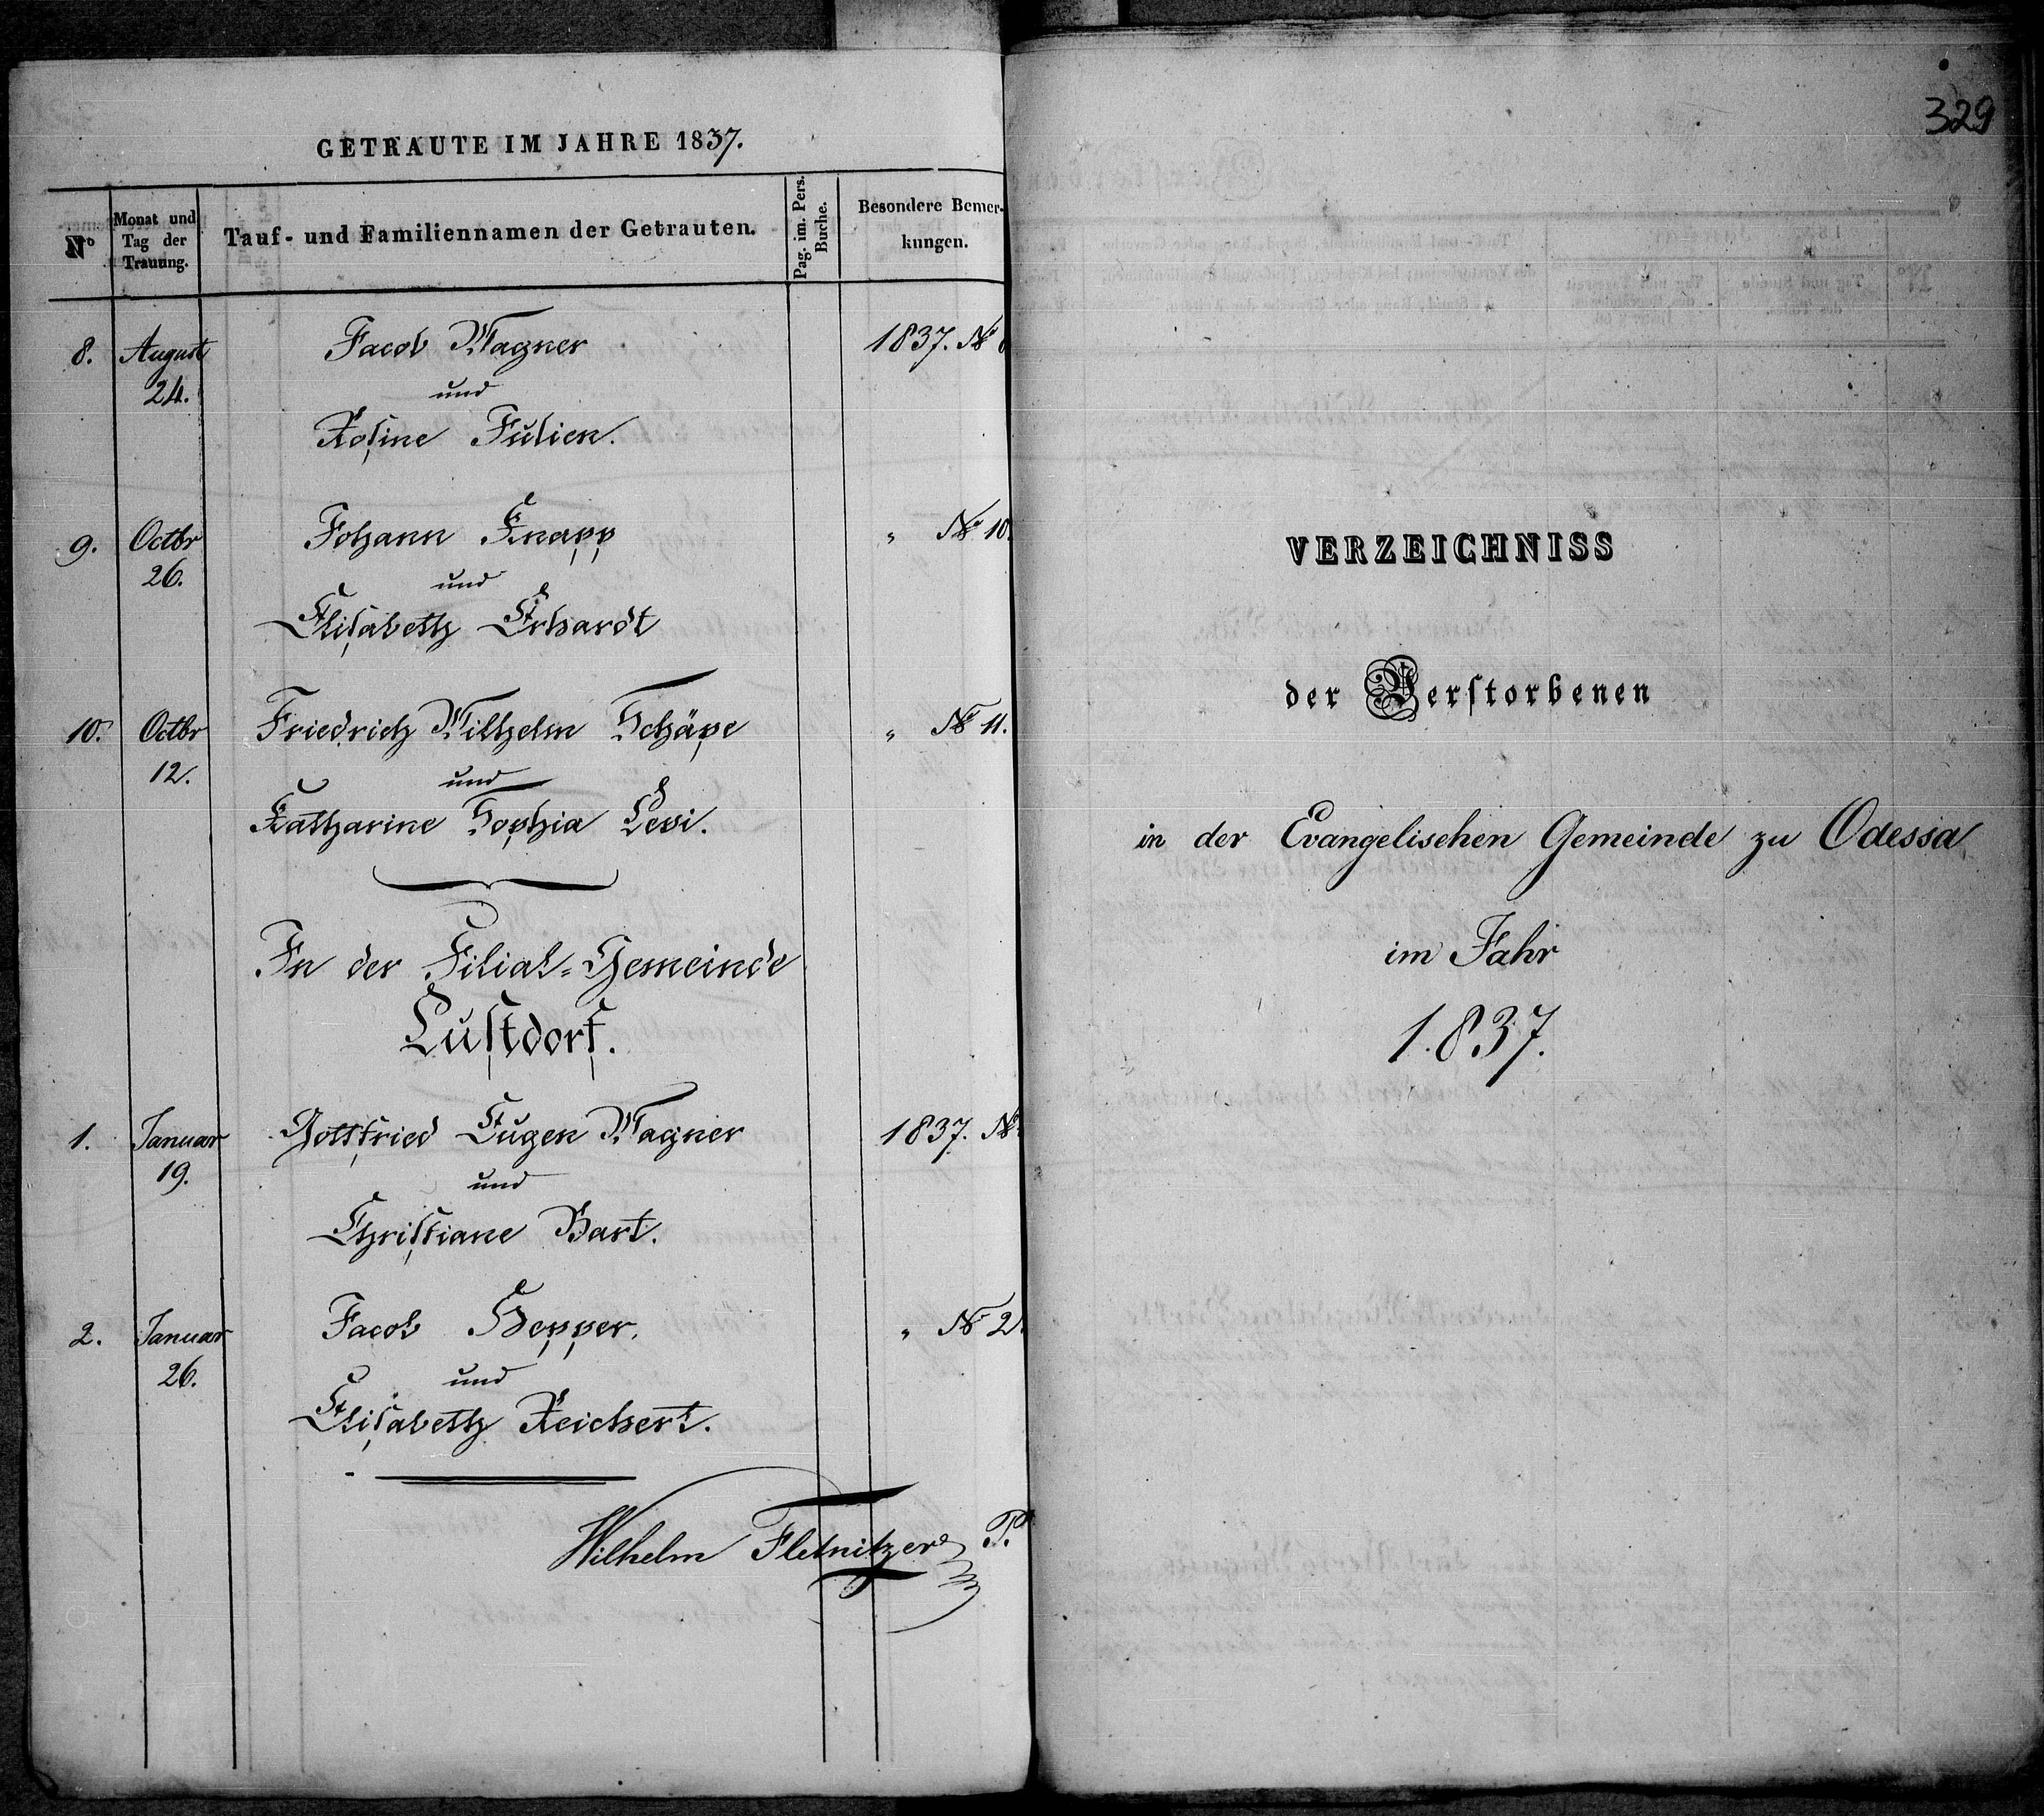 GETRAUTE IM JAHRE 1837.
N° Monat und Tag der Trauung. Tauf- und Familiennamen der Getrauten. Pag. im. Pers. Buche. Besondere Bemerkungen.
8. August Jacob Wagner 1837. №
24. und
Rosine Julien.
9. Octbr Johann Knapp " № 10.
26. und
Elisabeth Erhardt
10. Octbr Friedrich Wilhelm Schäpe " № 11.
12. und
Katharine Sophia Levi.
In der Filial-Gemeinde
Lustdorf.
1. Januar Gottfried Eugen Wagner 1837. №
19. und
Christiane Bart.
2. Januar Jacob Hepper. " № 2
26. und
Elisabeth Reichert.
Wilhelm Fletnitzer P.
329
VERZEICHNISS
der Verstorbenen
in der Evangelischen Gemeinde zu Odessa
im Jahr
1837.